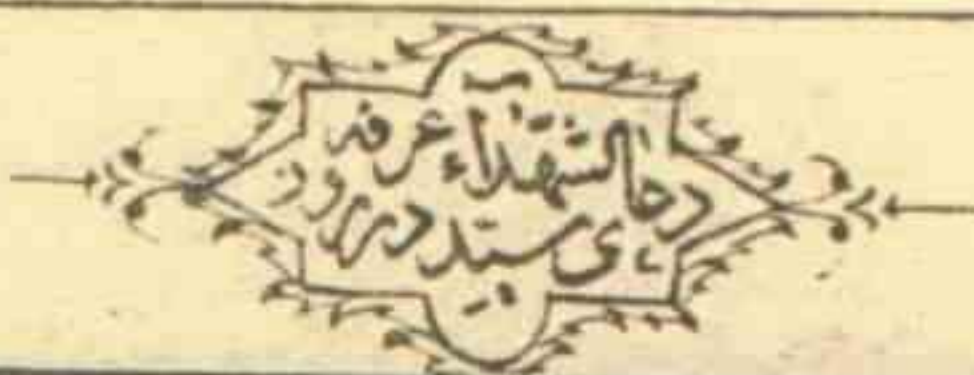 دعای سید الشهدآء در روز عرفه